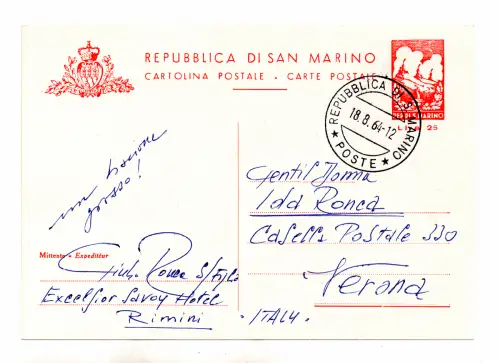 REPUBBLICA DI SAN MARINO
CARTOLINA POSTALE - CARTE POSTALE
REP. DI S. MARINO
LIRE 25
REPUBBLICA DI S. MARINO
18.8.64-12
★ POSTE ★
un bacione
grosso!
Gentil Donna
Ida Ronca
Casella Postale 330
Verona
ITALY.
Mittente - Expéditeur
Ronca
Excelsior Savoy Hotel
Rimini